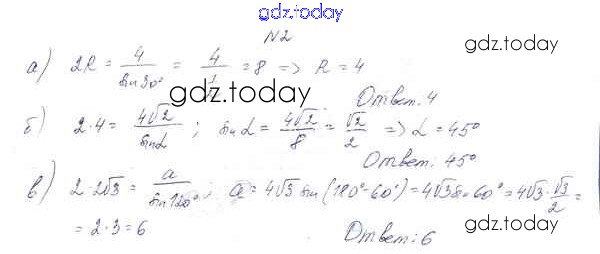 gdz.today
N2
gdz.today
а) 2R = 4/sin30° = 4/(1/2) = 8 => R = 4
gdz.today
Ответ: 4
б) 2·4 = 4√2/sinα ; sinα = 4√2/8 = √2/2 => α = 45°
Ответ: 45°
в) 2·2√3 = a/sin120° ; a = 4√3 sin(180°-60°) = 4√3 sin 60° = 4√3·√3/2 =
= 2·3 = 6
gdz.today
Ответ: 6